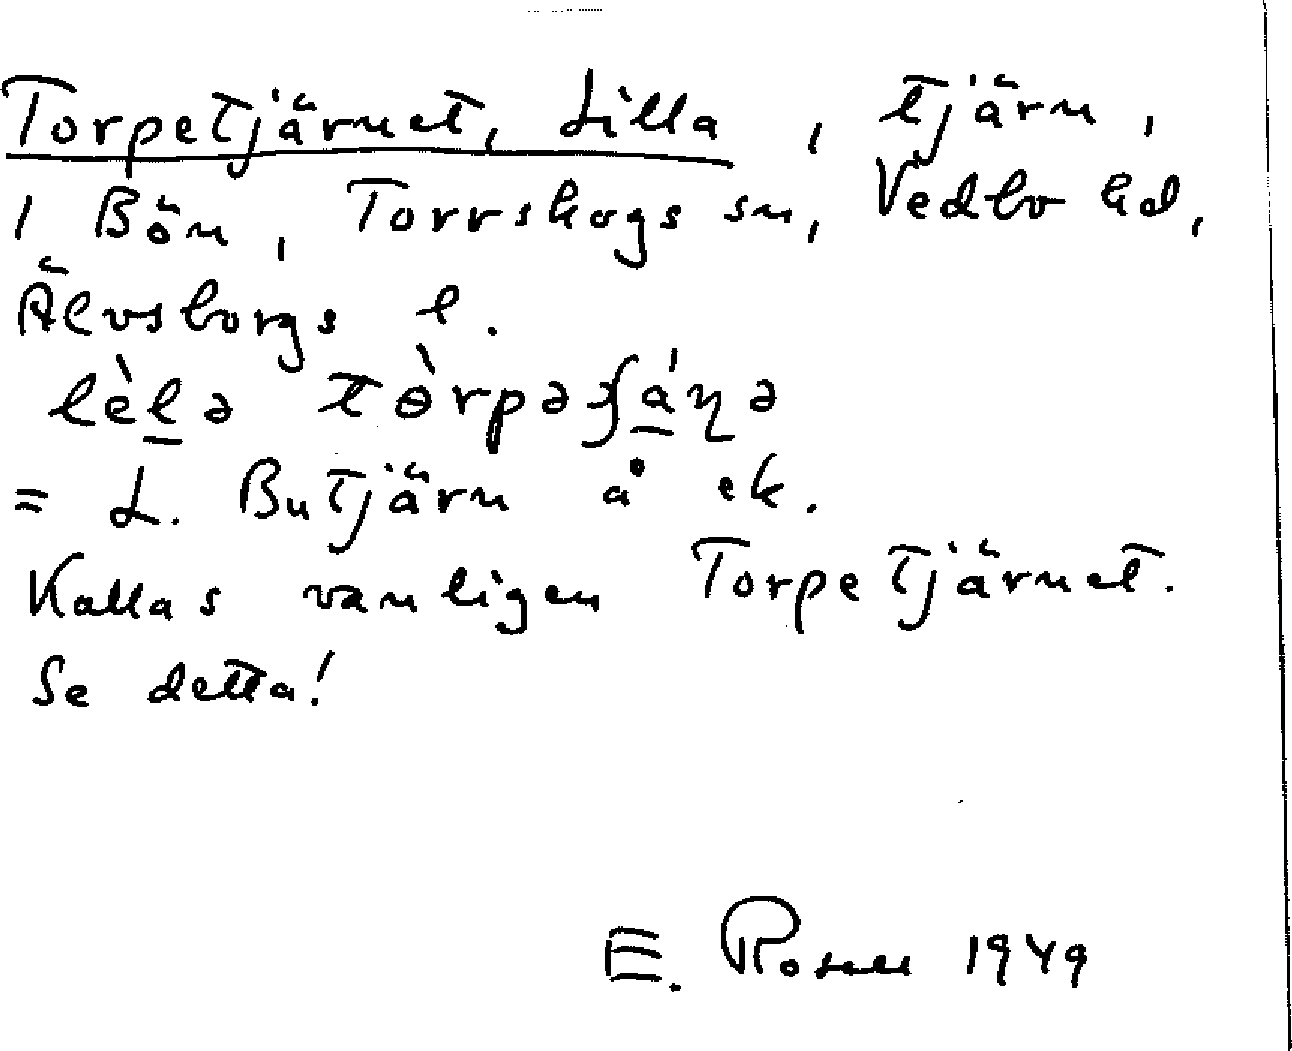 Torpetjärnet, Lilla, tjärn,
i Bön, Torrskogs sn, Vedbo hd,
Älvsborgs l.
lèlə tòrpəʃánə
= L. Butjärn å ek.
Kallas vanligen Torpetjärnet.
Se detta!
E. Rosell 1949